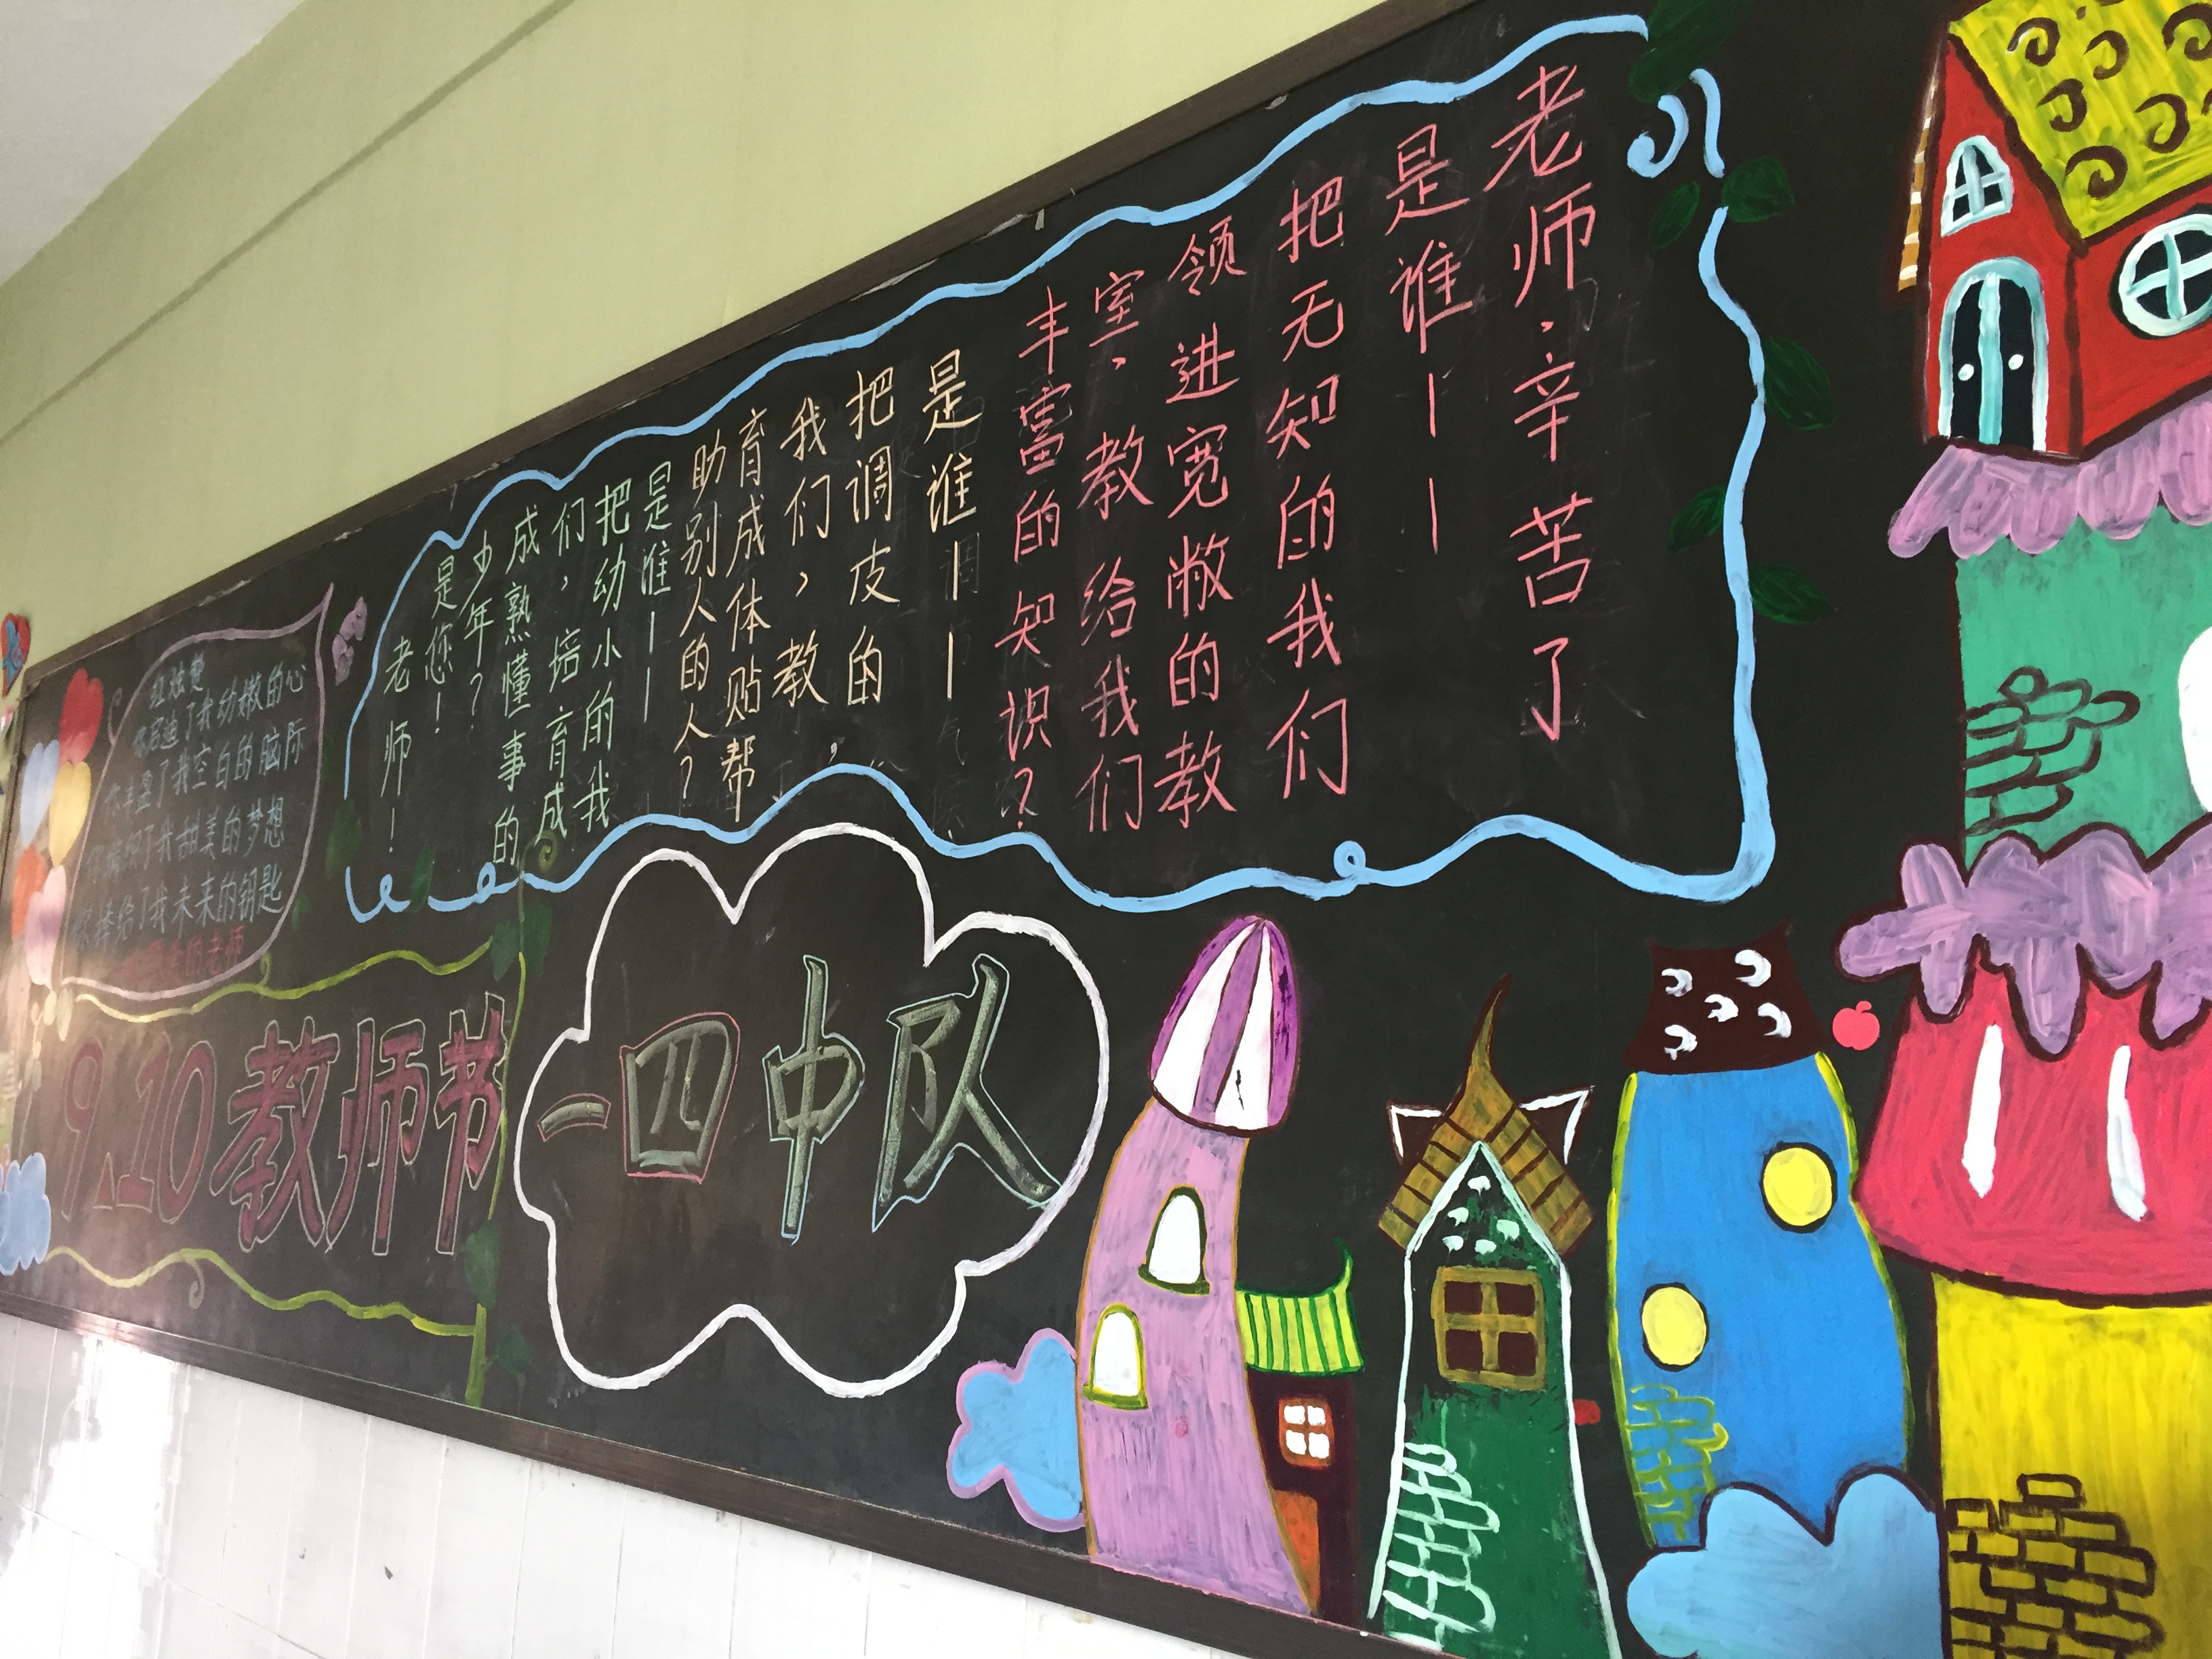 老师,辛苦了
是谁——
把无知的我们
领进宽敞的教
室,教给我们
丰富的知识?
是谁——
把调皮的
我们,教
育成体贴帮
助别人的人?
是谁——
把幼小的我
们,培育成
成熟懂事的
少年?
是您!
老师!
你启迪了我幼嫩的心
你丰盈了我空白的脑际
你编织了我甜美的梦想
你捧给了我未来的钥匙
的老师
9.10教师节
一四中队